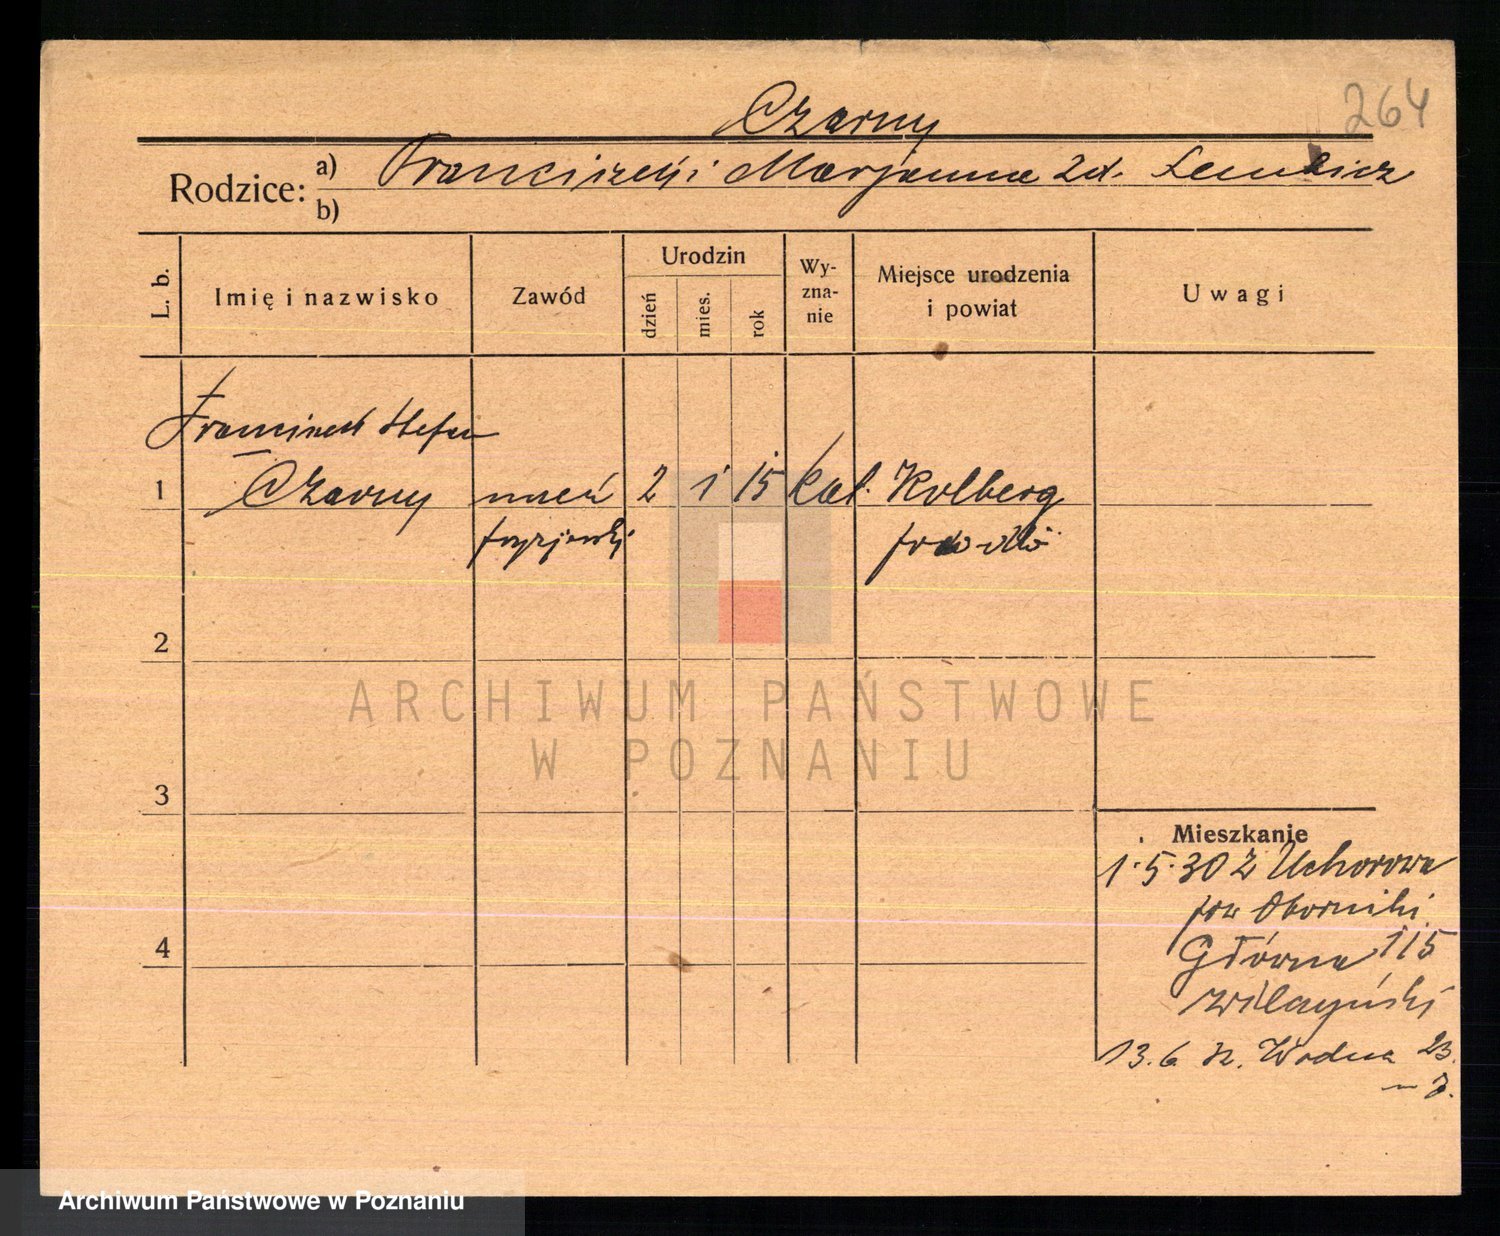 264
Czarny
Rodzice: a) Franciszek i Marjanna zd.
b)
L. b.
Imię i nazwisko
Zawód
Urodzin
dzień
mies.
rok
Wy-
zna-
nie
Miejsce urodzenia
i powiat
Uwagi
Franciszek Stefan
1 Czarny uczeń 2 1 15 kat. Kolberg
fryzjerski
2
3
4
Mieszkanie
1.5.30 z Uchorowa
pow Oborniki
Główna 115
13.6.32. Wodna 23.
ARCHIWUM PAŃSTWOWE
W POZNANIU
Archiwum Państwowe w Poznaniu